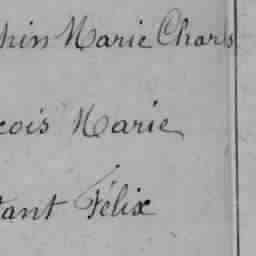 hin Marie Charls
çois Marie
tant Félix